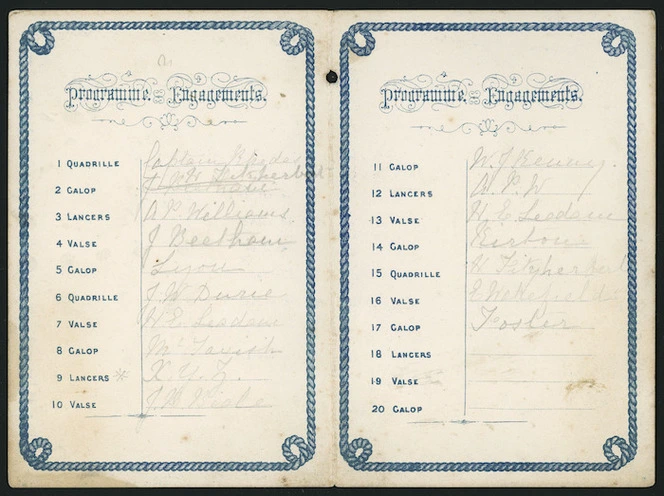 Programme. Engagements.
1 QUADRILLE Captain
2 GALOP H Fitzherbert
3 LANCERS A P Williams
4 VALSE J Beetham
5 GALOP Lyon
6 QUADRILLE J W Durie
7 VALSE W E Leadam
8 GALOP Mc Tavish
9 LANCERS * X Y Z.
10 VALSE
Programme. Engagements.
11 GALOP W. J Kenny.
12 LANCERS A P W
13 VALSE W E Leadam
14 GALOP
15 QUADRILLE H Fitzherbert
16 VALSE E Wakefield
17 GALOP Foster
18 LANCERS
19 VALSE
20 GALOP